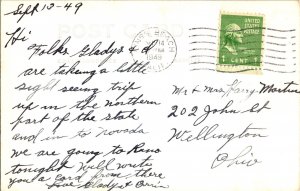 Sept 13-49
Hi
Folks. Gladys & I
are taking a little
sight seeing trip
up in the northern
part of the state
and in to Nevada
we are going to Reno
tonight Will write
you a card from there
Love Gladys &
BEACH
1949
CALIF.
UNITED STATES
POSTAGE
1 CENT 1
Mr & Mrs Harry Martin
202 John St
Wellington
Ohio